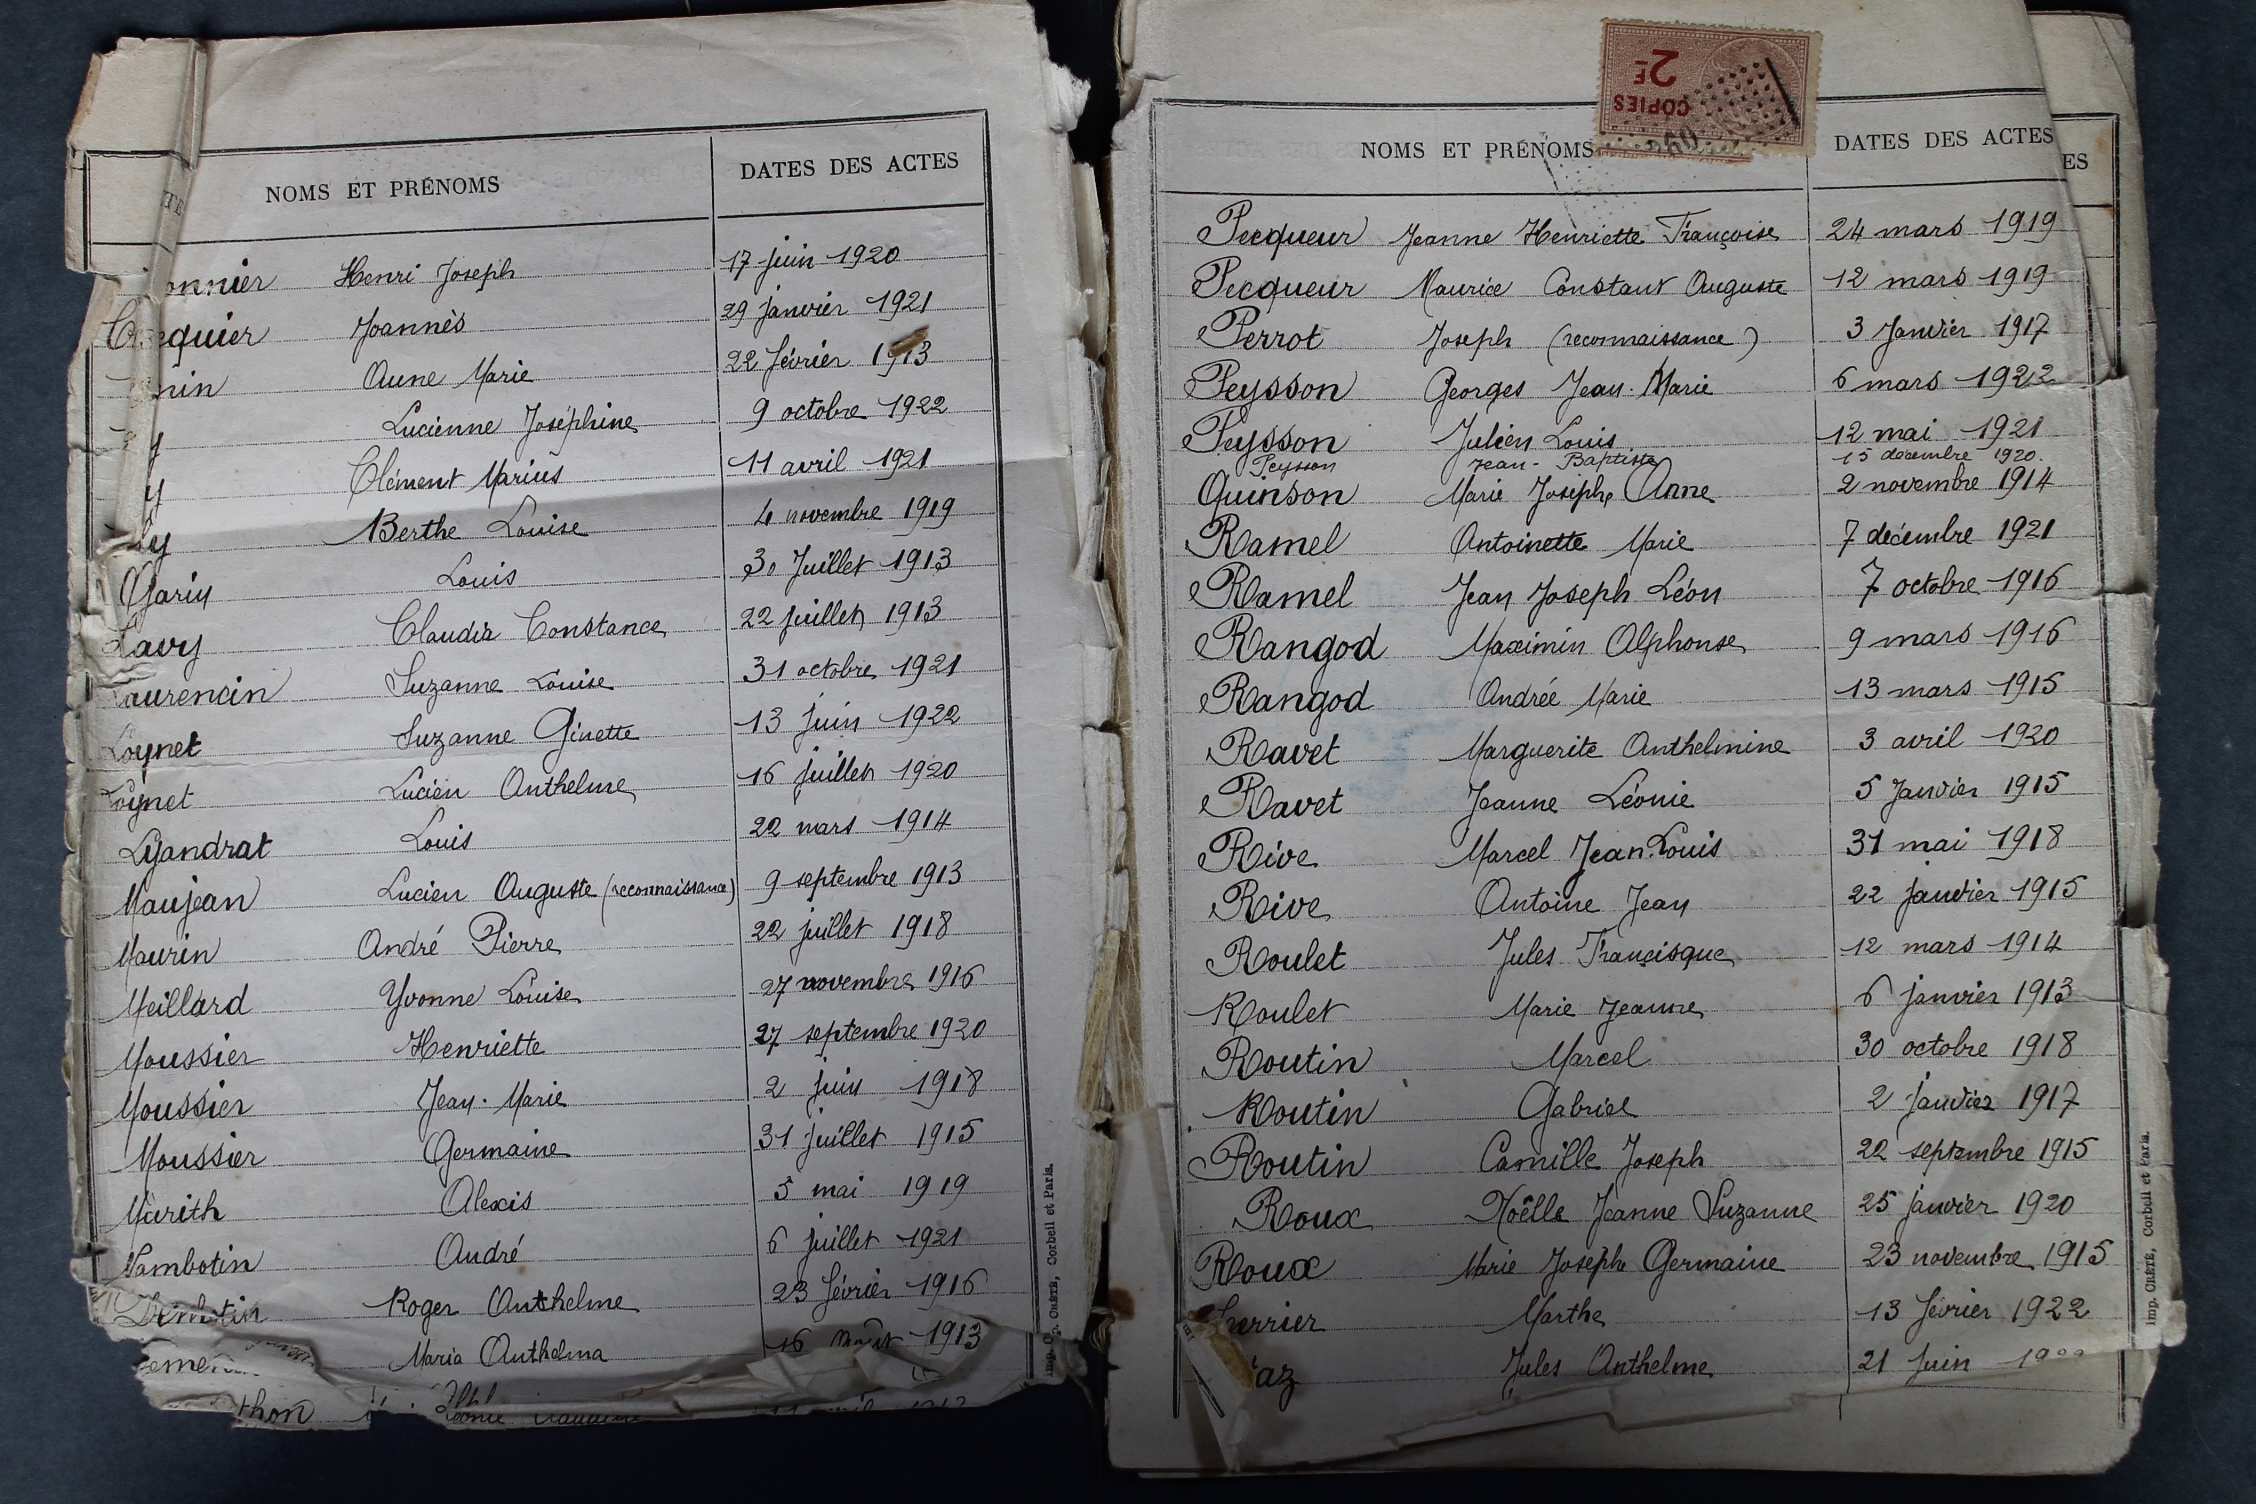 NOMS ET PRÉNOMS DATES DES ACTES
onnier Henri Joseph 17 juin 1920
equier Joannès 29 janvier 1921
nin Anne Marie 22 février 1913
y Lucienne Joséphine 9 octobre 1922
y Clément Marius 11 avril 1921
y Berthe Louise 4 novembre 1919
Garin Louis 30 Juillet 1913
Lavy Claudia Constance 22 juillet 1913
Laurencin Suzanne Louise 31 octobre 1921
Loynet Suzanne Ginette 13 juin 1922
Loynet Lucien Anthelme 16 juillet 1920
Lyandrat Louis 22 mars 1914
Maujean Lucien Auguste (reconnaissance) 9 septembre 1913
Maurin André Pierre 22 juillet 1918
Meillard Yvonne Louise 27 novembre 1916
Moussier Henriette 27 septembre 1920
Moussier Jean-Marie 2 juin 1918
Moussier Germaine 31 juillet 1915
Murith Alexis 5 mai 1919
Nambotin André 6 juillet 1921
Roger Anthelme 23 février 1916
Maria Anthelma 16 1913
thon
Imp. CRÉTÉ, Corbeil et Paris.
COPIES
2F
NOMS ET PRÉNOMS DATES DES ACTES
ES
Pecqueur Jeanne Henriette Françoise 24 mars 1919
Pecqueur Maurice Constant Auguste 12 mars 1919
Perrot Joseph (reconnaissance) 3 Janvier 1917
Peysson Georges Jean-Marie 6 mars 1922
Peysson Julien Louis 12 mai 1921
Peysson Jean-Baptiste 15 décembre 1920.
Quinson Marie Josephe Anne 2 novembre 1914
Ramel Antoinette Marie 7 décembre 1921
Ramel Jean Joseph Léon 7 octobre 1916
Rangod Maximin Alphonse 9 mars 1916
Rangod Andrée Marie 13 mars 1915
Ravet Marguerite Anthelmine 3 avril 1920
Ravet Jeanne Léonie 5 Janvier 1915
Rive Marcel Jean Louis 31 mai 1918
Rive Antoine Jean 22 janvier 1915
Roulet Jules Francisque 12 mars 1914
Roulet Marie Jeanne 6 janvier 1913
Routin Marcel 30 octobre 1918
Routin Gabriel 2 janvier 1917
Routin Camille Joseph 22 septembre 1915
Roux Noëlle Jeanne Suzanne 25 janvier 1920
Roux Marie Josephe Germaine 23 novembre 1915
Serrier Marthe 13 février 1922
az Jules Anthelme 21 Juin
Imp. CRÉTÉ, Corbeil et Paris.